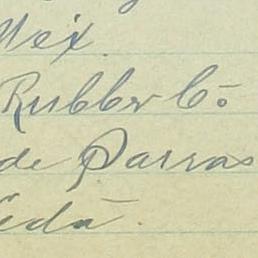 Mex.
Rubber Co.
de Parras